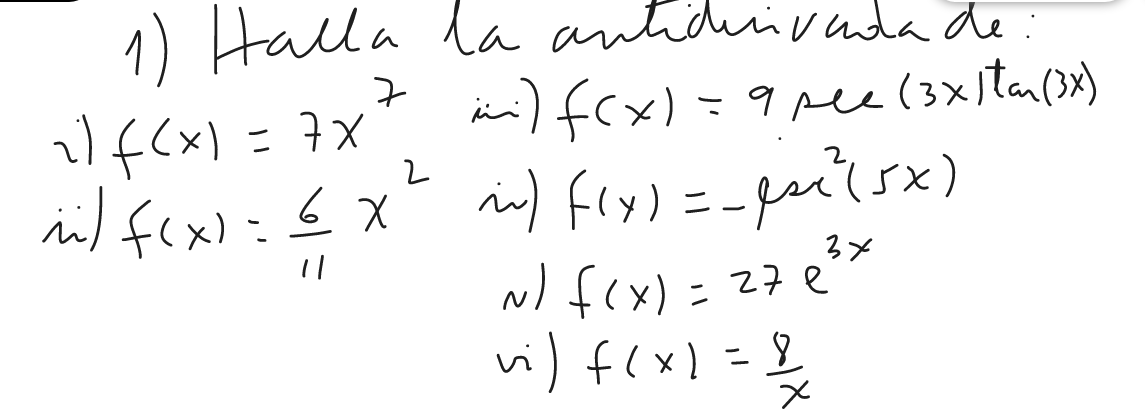 1) Halla la antiderivada de:
i) f(x) = 7x^7
ii) f(x) = 6/11 x^2
iii) f(x) = 9 sec(3x) tan(3x)
iv) f(x) = - csc^2(5x)
v) f(x) = 27 e^{3x}
vi) f(x) = 8/x